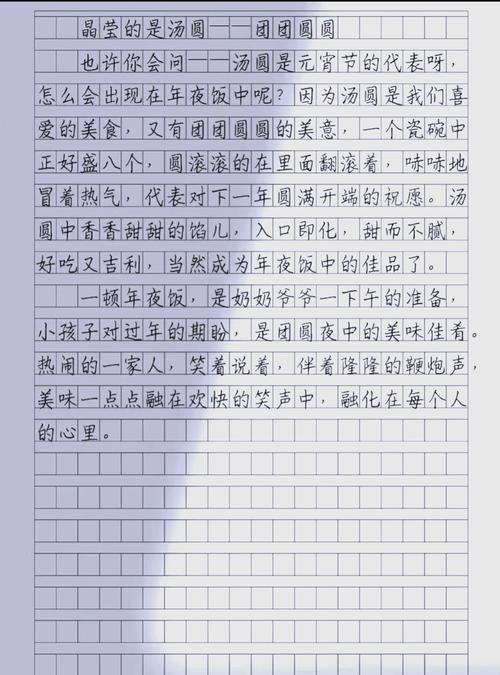 晶莹的是汤圆——团团圆圆
也许你会问——汤圆是元宵节的代表呀，
怎么会出现在年夜饭中呢？因为汤圆是我们喜
爱的美食，又有团团圆圆的美意，一个瓷碗中
正好盛八个，圆滚滚的在里面翻滚着，哧哧地
冒着热气，代表对下一年圆满开端的祝愿。汤
圆中香香甜甜的馅儿，入口即化，甜而不腻，
好吃又吉利，当然成为年夜饭中的佳品了。
一顿年夜饭，是奶奶爷爷一下午的准备，
小孩子对过年的期盼，是团圆夜中的美味佳肴。
热闹的一家人，笑着说着，伴着隆隆的鞭炮声，
美味一点点融在欢快的笑声中，融化在每个人
的心里。